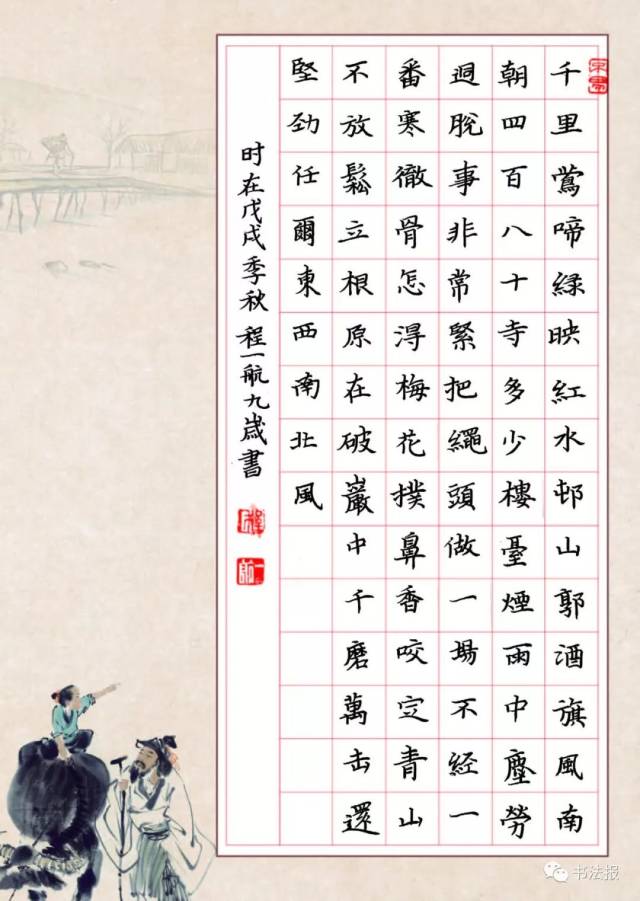 千里鶯啼緑映紅水邨山郭酒旗風南
朝四百八十寺多少樓臺煙雨中塵勞
迥脫事非常緊把繩頭做一場不经一
番寒徹骨怎得梅花撲鼻香咬定青山
不放鬆立根原在破巖中千磨萬击還
堅劲任爾東西南北風
时在戊戌季秋 程一航九歲書
书法报